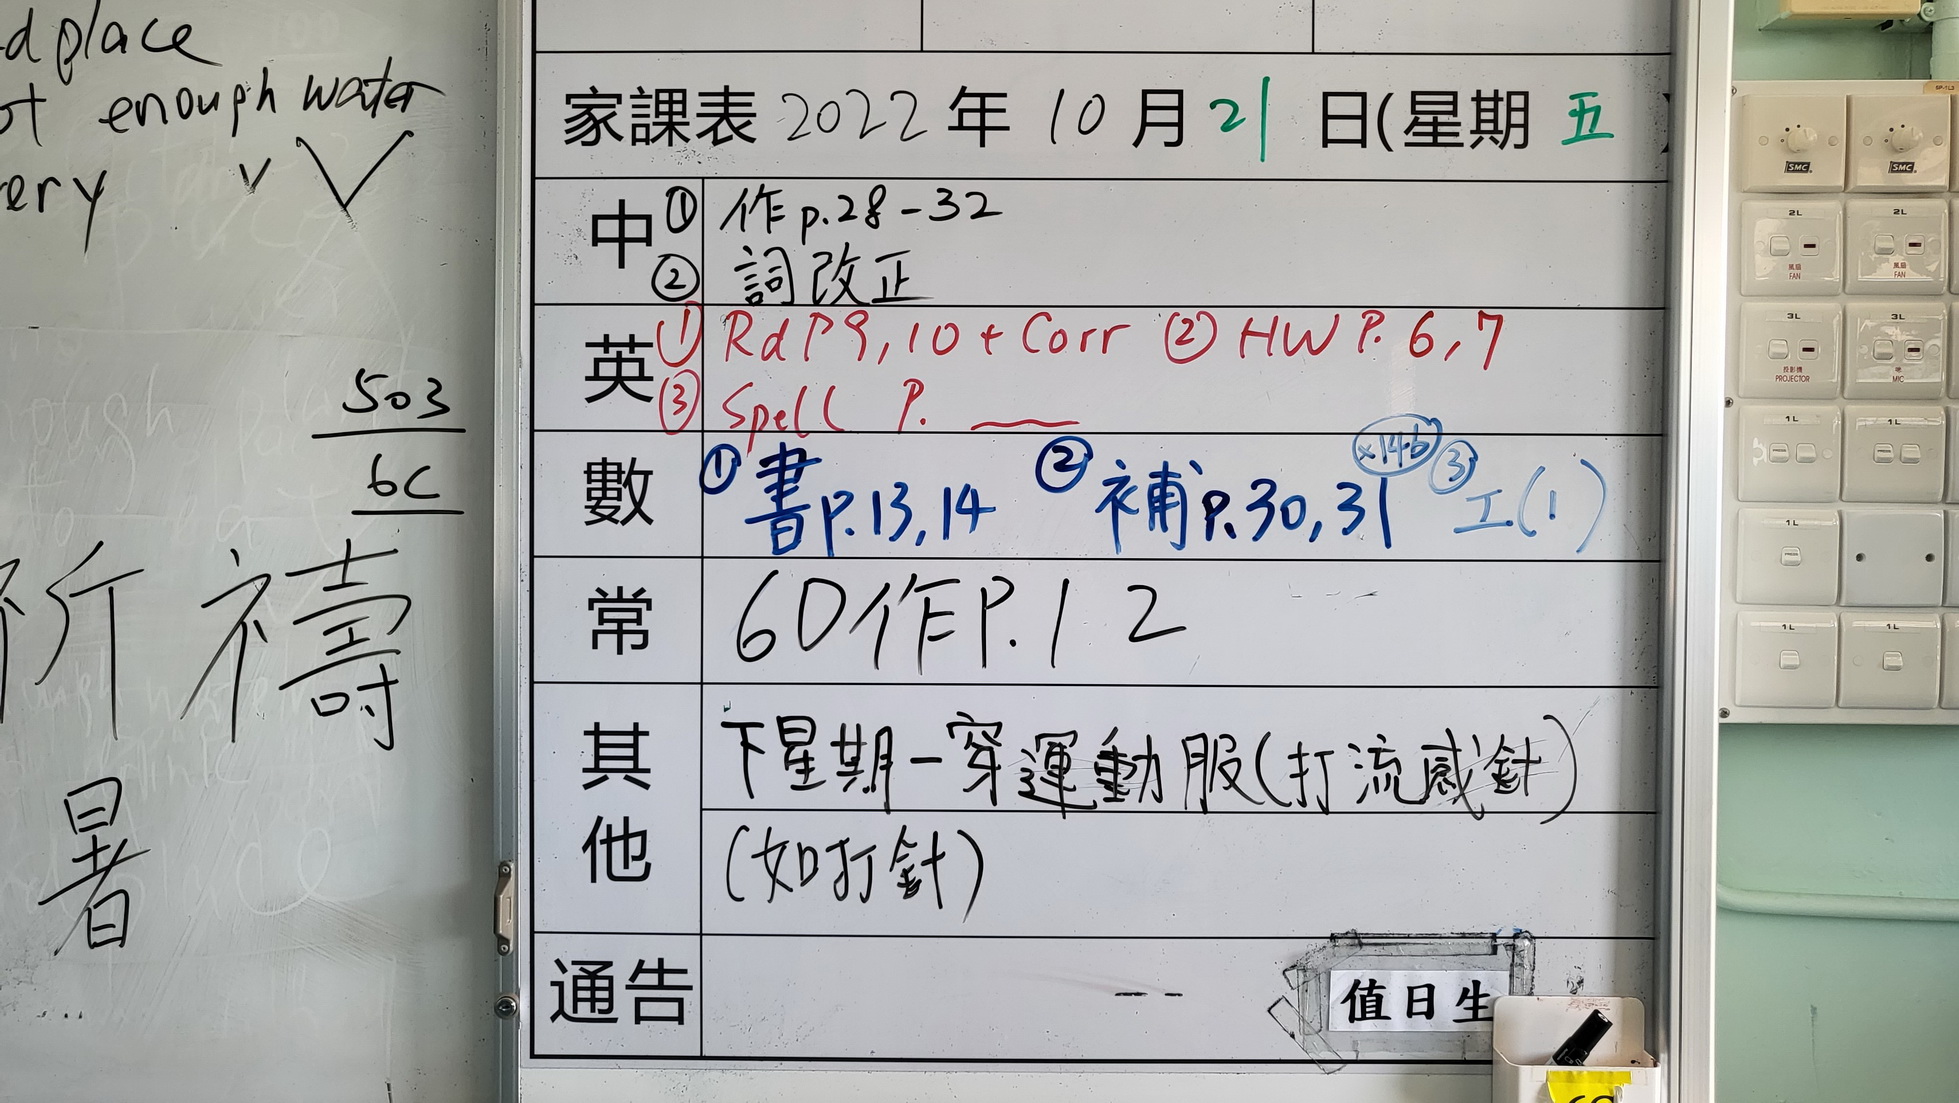 d place
ot enough water
ery
503
6C
祈禱
暑
家課表 2022 年 10 月 21 日(星期 五 )
中 ① 作 p.28-32
② 詞改正
英 ① Rd P9, 10 + Corr ② HW P. 6, 7
③ Spell P. ___
數 ① 書 p.13, 14 ② 補 p.30, 31 x14b ③ 工(1)
常 6D作P.1 2
其他 下星期一穿運動服(打流感針)
(如打針)
通告
值日生
SMC SMC
2L 2L
風扇 FAN 風扇 FAN
3L 3L
投影機 PROJECTOR 咪 MIC
1L 1L
1L
1L 1L